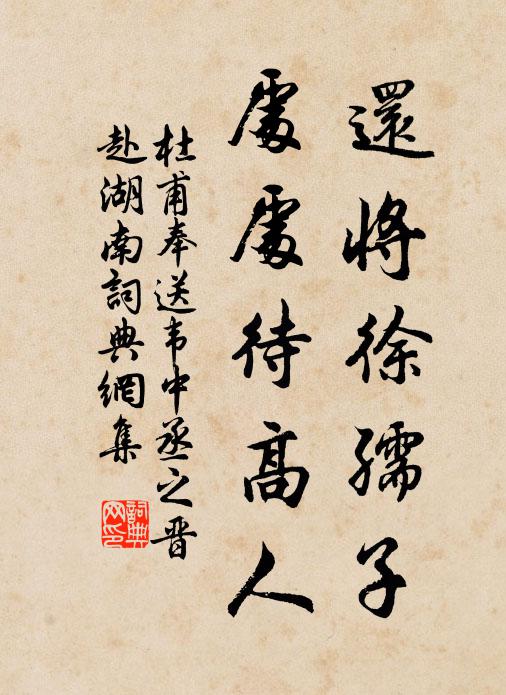 還將徐孺子
處處待高人
杜甫奉送韦中丞之晋
赴湖南詞典網集
詞典
网印